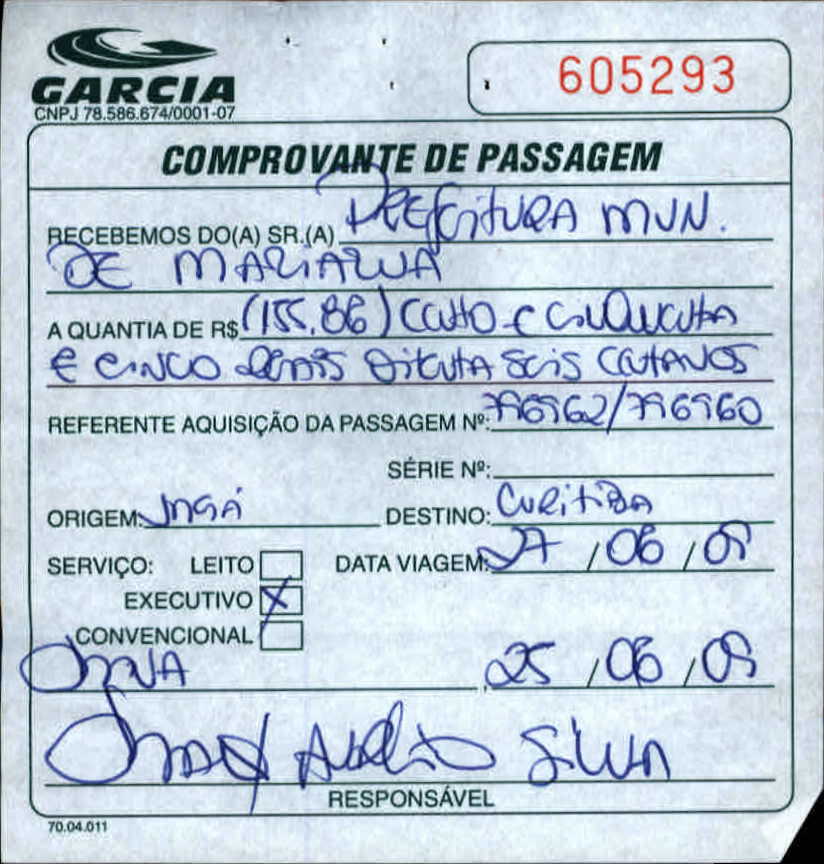 GARCIA
CNPJ 78.586.674/0001-07
605293
COMPROVANTE DE PASSAGEM
RECEBEMOS DO(A) SR.(A) PREFEITURA MUN.
DE MARIALVA
A QUANTIA DE R$ (155,86) CENTO E CINQUENTA
E CINCO REAIS OITENTA SEIS CENTAVOS
REFERENTE AQUISIÇÃO DA PASSAGEM Nº: 796962/796960
SÉRIE Nº:
ORIGEM: MGÁ DESTINO: CURITIBA
SERVIÇO: LEITO DATA VIAGEM: 27/06/09
EXECUTIVO X
CONVENCIONAL
25/06/09
SILVA
RESPONSÁVEL
70.04.011